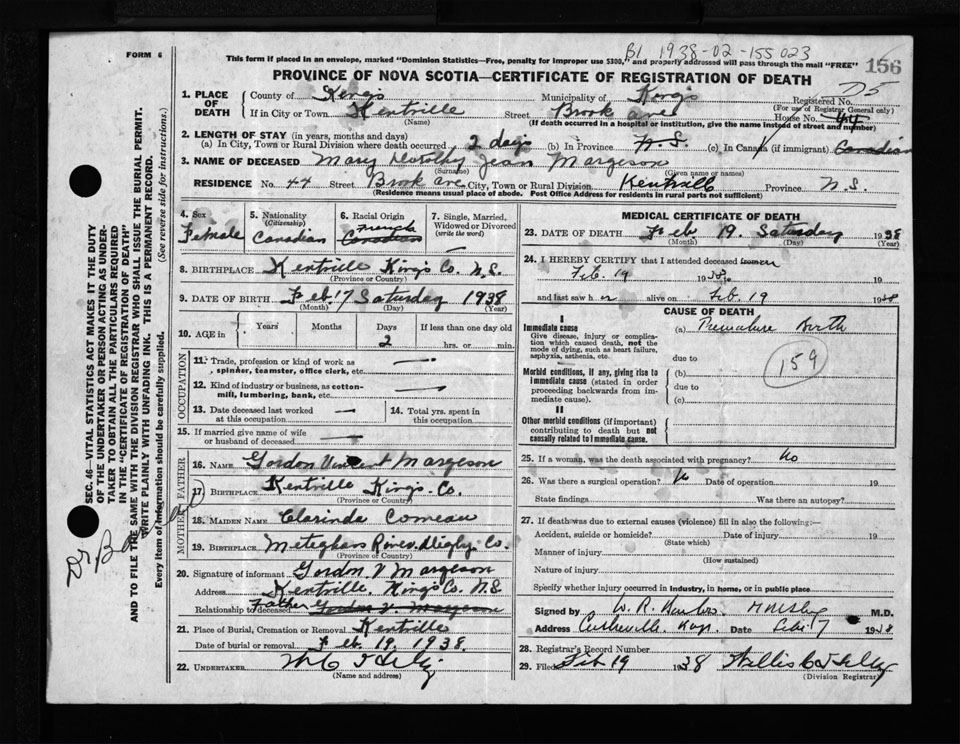 FORM 6
B1 1938-02-155 023
This form if placed in an envelope, marked "Dominion Statistics—Free, penalty for improper use $300," and properly addressed will pass through the mail "FREE"
156
PROVINCE OF NOVA SCOTIA—CERTIFICATE OF REGISTRATION OF DEATH
D5
1. PLACE OF DEATH
County of King's Municipality of King's Registered No.
(For use of Registrar General only)
If in City or Town Kentville Street Brook ave House No. 44
(Name) (If death occurred in a hospital or institution, give the name instead of street and number)
2. LENGTH OF STAY (in years, months and days)
(a) In City, Town or Rural Division where death occurred 2 days (b) In Province N.S. (c) In Canada (if immigrant) Canadian
3. NAME OF DECEASED Mary Dorothy Jean Margeson
(Surname) (Given name or names)
RESIDENCE No. 44 Street Brook ave City, Town or Rural Division Kentville Province N.S.
(Residence means usual place of abode. Post Office Address for residents in rural parts not sufficient)
4. Sex
Female
5. Nationality
(Citizenship)
Canadian
6. Racial Origin
French
Canadian
7. Single, Married, Widowed or Divorced
(write the word)
8. BIRTHPLACE Kentville King's Co. N.S.
(Province or Country)
9. DATE OF BIRTH Feb. 17 Saturday 1938
(Month) (Day) (Year)
10. AGE in Years Months Days If less than one day old
2 hrs. or min.
OCCUPATION
11. Trade, profession or kind of work as spinner, teamster, office clerk, etc.
12. Kind of industry or business, as cotton-mill, lumbering, bank, etc.
13. Date deceased last worked at this occupation
14. Total yrs. spent in this occupation
15. If married give name of wife or husband of deceased
FATHER
16. NAME Gordon Vincent Margeson
17. BIRTHPLACE Kentville King's Co.
(Province or Country)
MOTHER
18. MAIDEN NAME Clarinda Comeau
19. BIRTHPLACE Meteghan River Digby Co.
(Province or Country)
20. Signature of informant Gordon V Margeson
Address Kentville, King's Co. N.S
Relationship to deceased Father Gordon V. Margeson
21. Place of Burial, Cremation or Removal Kentville
Date of burial or removal Feb. 19, 1938.
22. UNDERTAKER
(Name and address)
MEDICAL CERTIFICATE OF DEATH
23. DATE OF DEATH Feb 19. Saturday 1938
(Month) (Day) (Year)
24. I HEREBY CERTIFY that I attended deceased from
Feb. 19 1938, to 19
and last saw her alive on Feb. 19 1938
CAUSE OF DEATH
I
Immediate cause
Give disease, injury or complication which caused death, not the mode of dying, such as heart failure, asphyxia, asthenia, etc.
(a) Premature Birth
due to
159
Morbid conditions, if any, giving rise to immediate cause (stated in order proceeding backwards from immediate cause).
(b)
due to
(c)
II
Other morbid conditions (if important) contributing to death but not causally related to immediate cause.
25. If a woman, was the death associated with pregnancy? No
26. Was there a surgical operation? No Date of operation 19
State findings Was there an autopsy?
27. If death was due to external causes (violence) fill in also the following:—
Accident, suicide or homicide? Date of injury 19
(State which)
Manner of injury
(How sustained)
Nature of injury
Specify whether injury occurred in industry, in home, or in public place
Signed by W. R. M.D.
Address Date 1938
28. Registrar's Record Number
29. Filed Feb 19 1938
(Division Registrar)
SEC. 46—VITAL STATISTICS ACT MAKES IT THE DUTY
OF THE UNDERTAKER OR PERSON ACTING AS UNDER-
TAKER TO OBTAIN ALL THE PARTICULARS REQUIRED
IN THE "CERTIFICATE OF REGISTRATION OF DEATH"
AND TO FILE THE SAME WITH THE DIVISION REGISTRAR WHO SHALL ISSUE THE BURIAL PERMIT.
WRITE PLAINLY WITH UNFADING INK. THIS IS A PERMANENT RECORD.
Every item of information should be carefully supplied. (See reverse side for instructions.)